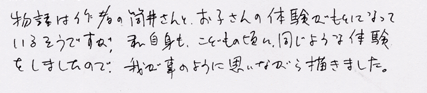 物語は作者の筒井さんと、お子さんの体験がもとになって
いるそうですが、私自身も、こどもの頃に、同じような体験
をしましたので、我が事のように思いながら描きました。